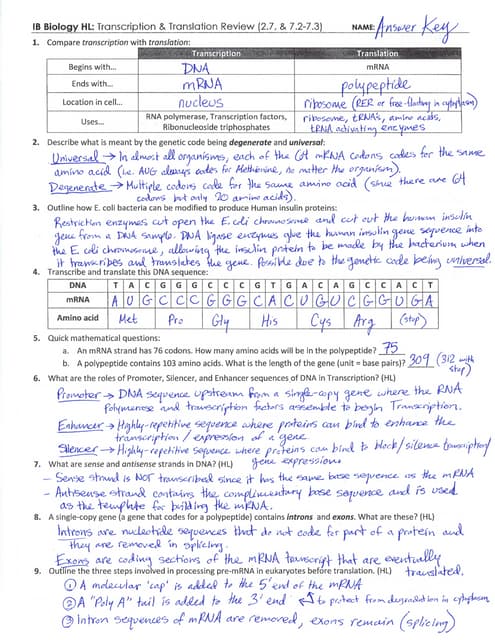 IB Biology HL: Transcription & Translation Review (2.7, & 7.2-7.3) NAME: Answer Key
1. Compare transcription with translation:
Transcription Translation
Begins with... DNA mRNA
Ends with... mRNA polypeptide
Location in cell... nucleus ribosome (RER or free-floating in cytoplasm)
Uses... RNA polymerase, Transcription factors, Ribonucleoside triphosphates ribosome, tRNA's, amino acids, tRNA activating enzymes
2. Describe what is meant by the genetic code being degenerate and universal:
Universal → In almost all organisms, each of the 64 mRNA codons codes for the same
amino acid (i.e. AUG always codes for Methionine, no matter the organism).
Degenerate → Multiple codons code for the same amino acid (since there are 64
codons but only 20 amino acids).
3. Outline how E. coli bacteria can be modified to produce Human insulin proteins:
Restriction enzymes cut open the E. coli chromosome and cut out the human insulin
gene from a DNA sample. DNA ligase enzymes glue the human insulin gene sequence into
the E. coli chromosome, allowing the insulin protein to be made by the bacterium when
it transcribes and translates the gene. Possible due to the genetic code being universal.
4. Transcribe and translate this DNA sequence:
DNA T A C G G G C C C G T G A C A G C C A C T
mRNA A U G C C C G G G C A C U G U C G G U G A
Amino acid Met Pro Gly His Cys Arg (stop)
5. Quick mathematical questions:
a. An mRNA strand has 76 codons. How many amino acids will be in the polypeptide? 75
b. A polypeptide contains 103 amino acids. What is the length of the gene (unit = base pairs)? 309 (312 with stop)
6. What are the roles of Promoter, Silencer, and Enhancer sequences of DNA in Transcription? (HL)
Promoter → DNA sequence upstream from a single-copy gene where the RNA
Polymerase and transcription factors assemble to begin Transcription.
Enhancer → Highly-repetitive sequence where proteins can bind to enhance the
transcription / expression of a gene.
Silencer → Highly-repetitive sequence where proteins can bind to block/silence transcription/
gene expression
7. What are sense and antisense strands in DNA? (HL)
- Sense strand is NOT transcribed since it has the same base sequence as the mRNA
- Antisense strand contains the complimentary base sequence and is used
as the template for building the mRNA.
8. A single-copy gene (a gene that codes for a polypeptide) contains introns and exons. What are these? (HL)
Introns are nucleotide sequences that do not code for part of a protein and
they are removed in splicing.
Exons are coding sections of the mRNA transcript that are eventually
translated.
9. Outline the three steps involved in processing pre-mRNA in eukaryotes before translation. (HL)
① A molecular 'cap' is added to the 5' end of the mRNA
② A "Poly A" tail is added to the 3' end to protect from degradation in cytoplasm
③ Intron sequences of mRNA are removed, exons remain (splicing)